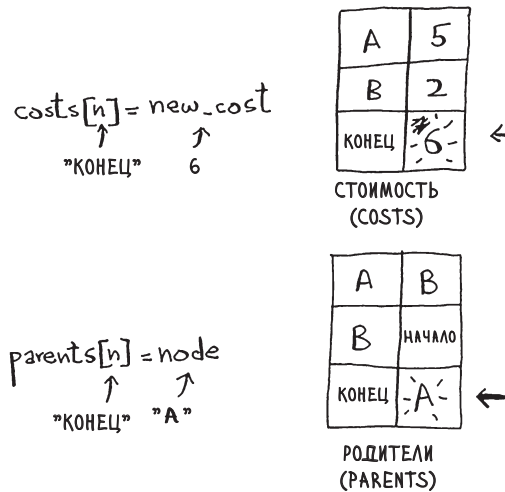 costs[n] = new_cost
"КОНЕЦ" 6
A 5
B 2
КОНЕЦ 6
СТОИМОСТЬ
(COSTS)
parents[n] = node
"КОНЕЦ" "A"
A B
B НАЧАЛО
КОНЕЦ A
РОДИТЕЛИ
(PARENTS)